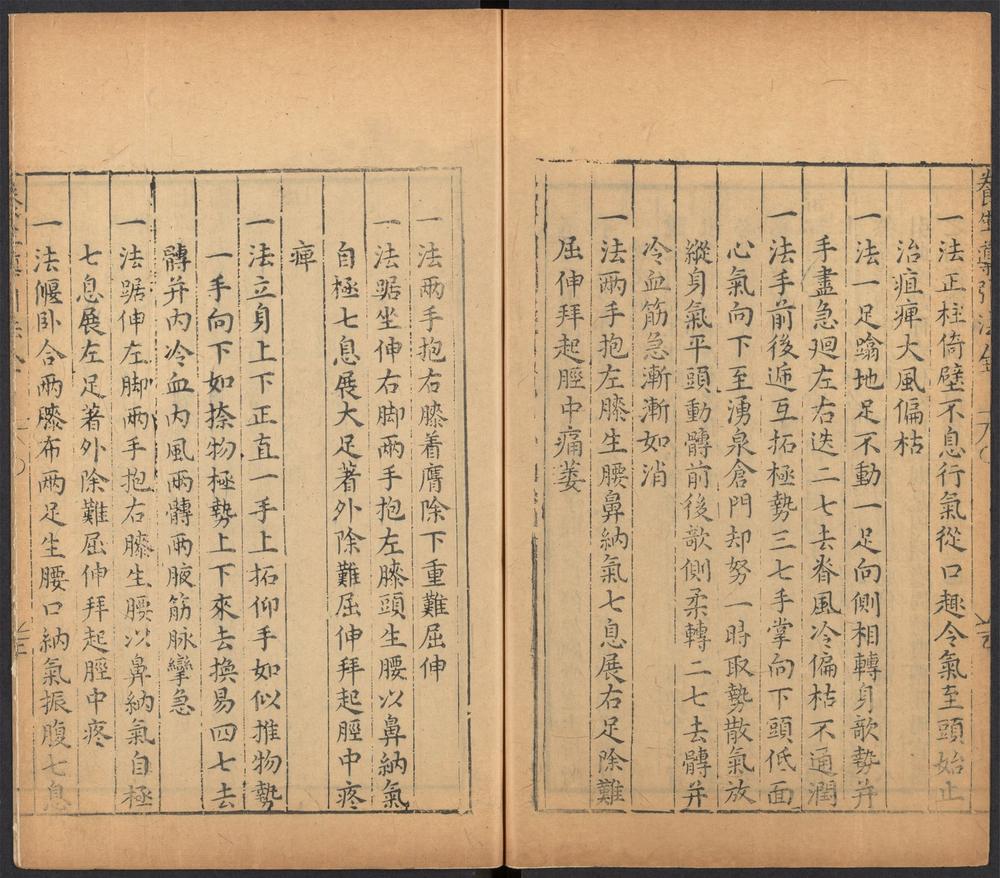 一法正柱倚壁不息行氣從口趣令氣至頭始止
治疽痺大風偏枯
一法一足蹹地足不動一足向側相轉身欹勢并
手盡急廻左右迭二七去脊風冷偏枯不通潤
一法手前後遞互拓極勢三七手掌向下頭低面
心氣向下至湧泉倉門却努一時取勢散氣放
縱身氣平頭動髆前後欹側柔轉二七去髆并
冷血筋急漸漸如消
一法兩手抱左膝生腰鼻納氣七息展右足除難
屈伸拜起脛中痛萎
一法兩手抱右膝着膺除下重難屈伸
一法踞坐伸右脚兩手抱左膝頭生腰以鼻納氣
自極七息展大足著外除難屈伸拜起脛中疼
痺
一法立身上下正直一手上拓仰手如似推物勢
一手向下如捺物極勢上下來去換易四七去
髆并內冷血內風兩髆兩腋筋脉攣急
一法踞伸左脚兩手抱右膝生腰以鼻納氣自極
七息展左足著外除難屈伸拜起脛中疼
一法偃卧合兩膝布兩足生腰口納氣振腹七息